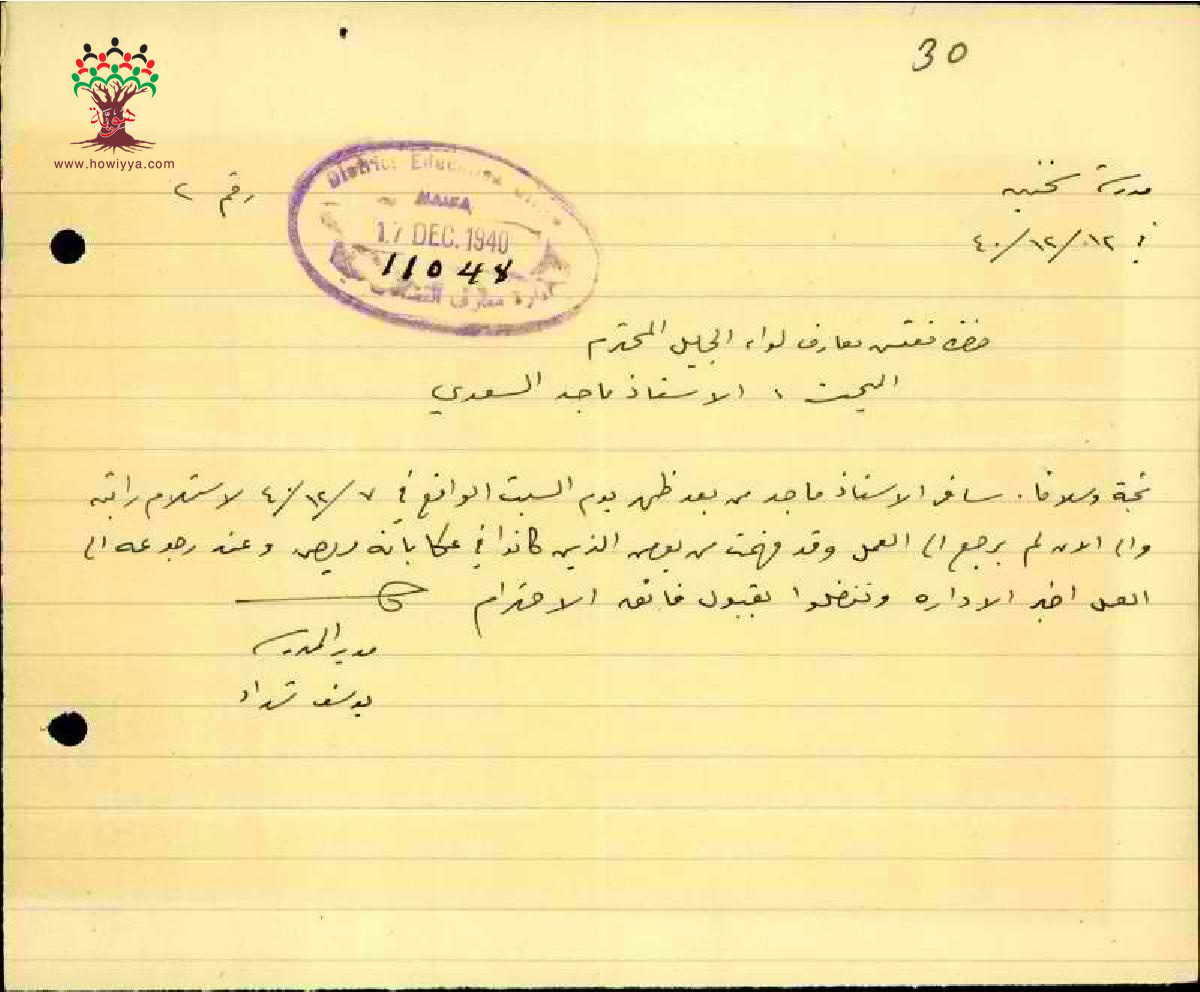 30
هوية
www.howiyya.com
District Education Office
HAIFA
17 DEC. 1940
11048
ادارة معارف
رقم ٢
مدرسة سخنين
في ١٢/١٢/٤٠
حضرة مفتش معارف لواء الجليل المحترم
البحث : الاستاذ ماجد السعدي
تحية وسلاما. سافر الاستاذ ماجد من بعد ظهر يوم السبت الواقع في ٧/١٢/٤٠ لاستلام راتبه
والى الان لم يرجع الى العمل وقد فهمت من بعض الذين كانوا في عكا بانه مريض وعند رجوعه الى
العمل اخبر الاداره وتفضلوا بقبول فائق الاحترام
مدير المدرسة
يوسف شداد